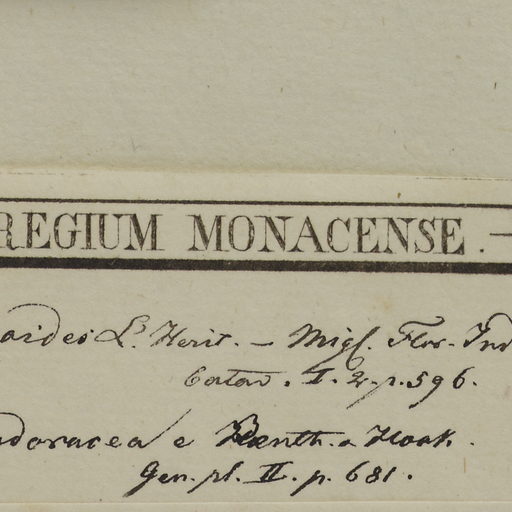 REGIUM MONACENSE. —
oides L'Herit. — Miq. Flor. Ind
batav. I. 2. p. 596.
doracea e Benth. & Hook.
Gen. pl. II. p. 681.